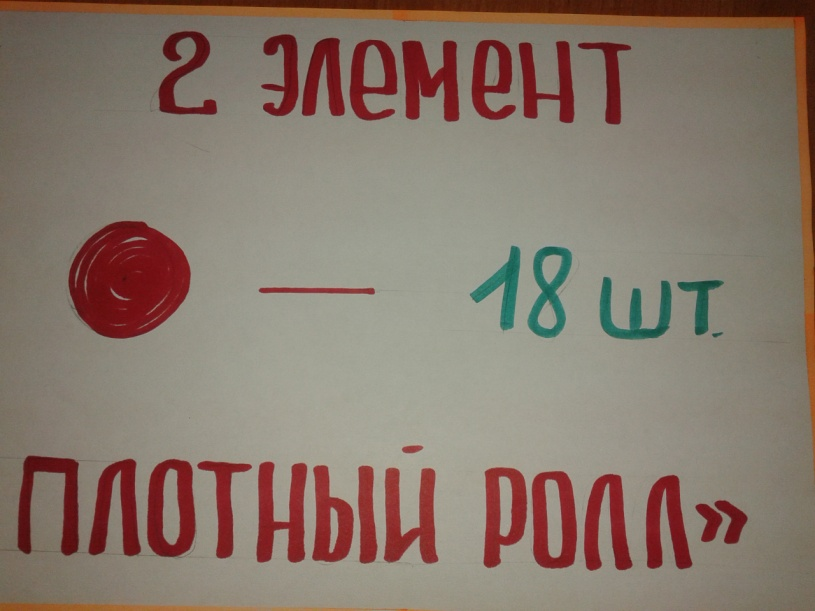 2 элемент
— 18 шт.
плотный ролл»